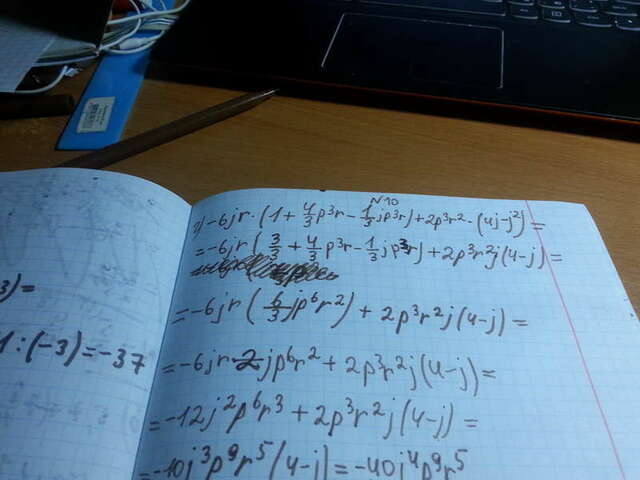 N10
2) -6jr · (1 + 4/3 p³r - 1/3 jp³r) + 2p³r² · (4j - j²) =
= -6jr (3/3 + 4/3 p³r - 1/3 jp³r) + 2p³r²j(4-j) =
= -6jr (6/3 jp⁶r²) + 2p³r²j(4-j) =
3) =
1 : (-3) = -37
= -6jr 2jp⁶r² + 2p³r²j(4-j) =
= -12j²p⁶r³ + 2p³r²j(4-j) =
= -10j³p⁹r⁵(4-j) = -40j⁴p⁹r⁵